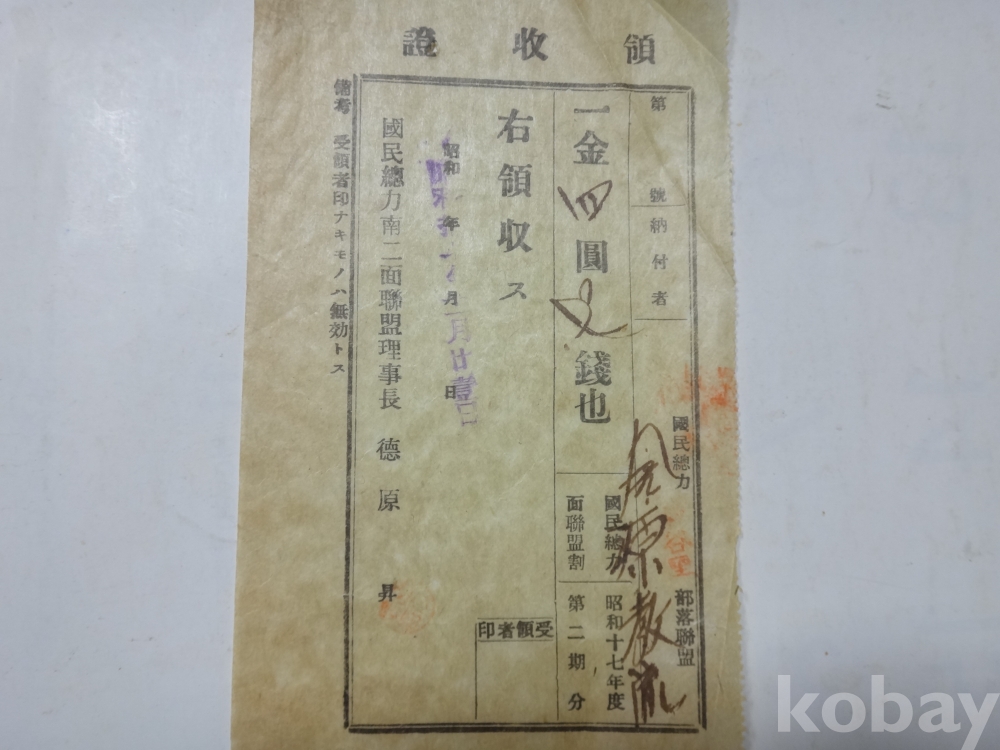 領收證
第 號 納付者
國民總力 谷里 部落聯盟
原
一金四圓 錢也
國民總力面聯盟割
昭和十七年度第二期分
右領収ス
受領者印
昭和 年 月 日
國民總力南二面聯盟理事長 德原 昇
備考 受領者印ナキモノハ無効トス
kobay